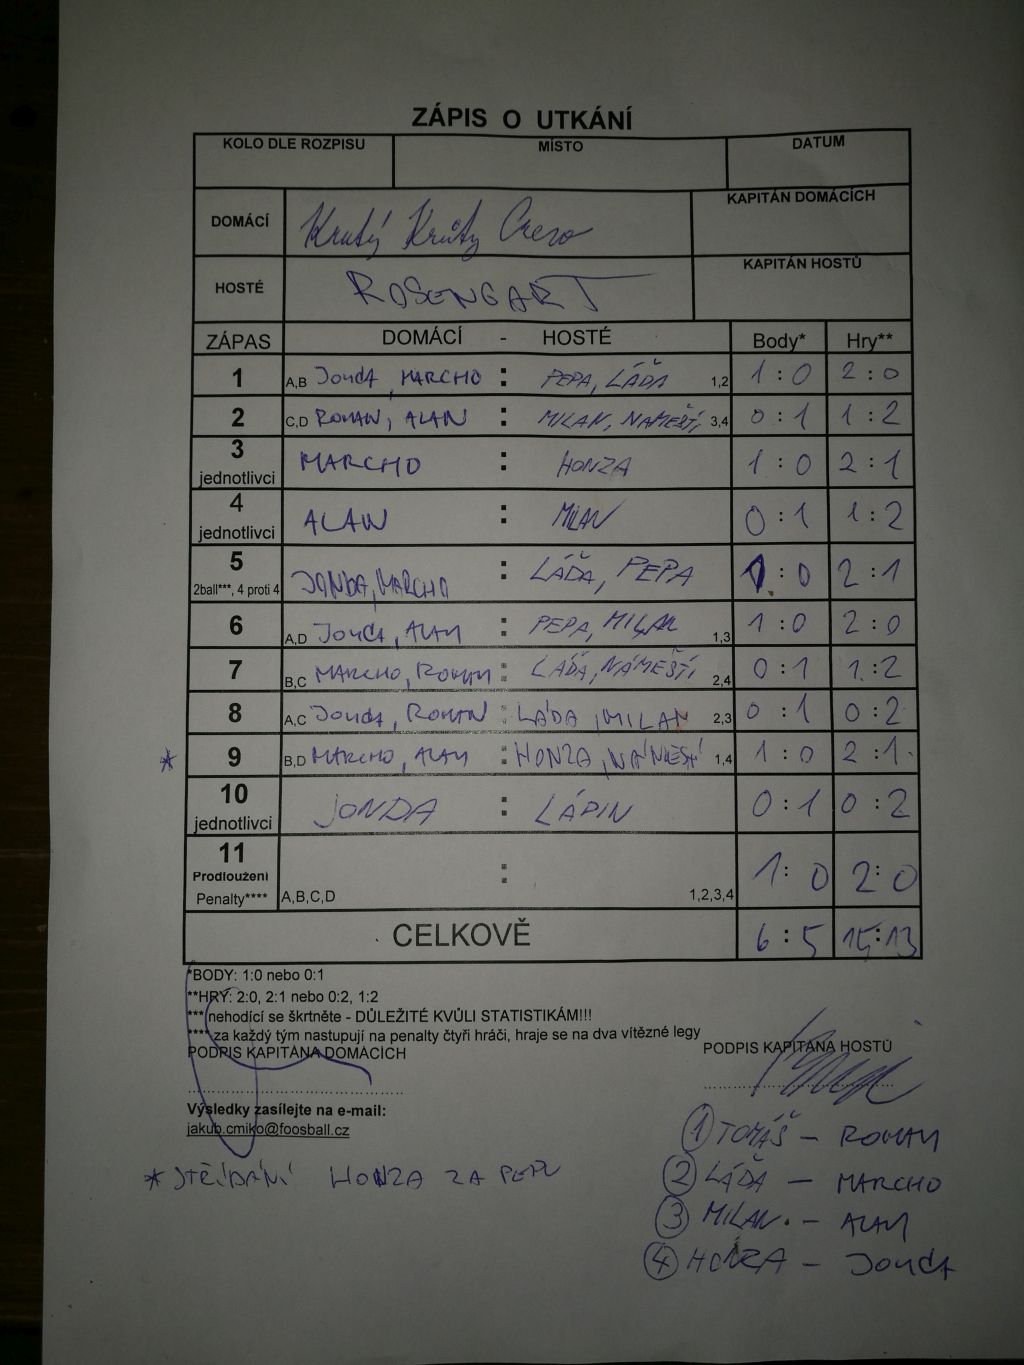 ZÁPIS O UTKÁNÍ
KOLO DLE ROZPISU MÍSTO DATUM
DOMÁCÍ Krutý Krůty Crew KAPITÁN DOMÁCÍCH
HOSTÉ ROSENGART KAPITÁN HOSTŮ
ZÁPAS DOMÁCÍ - HOSTÉ Body* Hry**
1 A,B JOUDA, MARCHO : PEPA, LÁĎA 1,2 1:0 2:0
2 C,D ROMAN, ALAN : MILAN, NÁMĚSTÍ 3,4 0:1 1:2
3 jednotlivci MARCHO : HONZA 1:0 2:1
4 jednotlivci ALAN : MILAN 0:1 1:2
5 2ball***, 4 proti 4 JONDA, MARCHO : LÁĎA, PEPA 1:0 2:1
6 A,D JOUDA, ALAN : PEPA, MILAN 1,3 1:0 2:0
7 B,C MARCHO, ROMAN : LÁĎA, NÁMĚSTÍ 2,4 0:1 1:2
8 A,C JOUDA, ROMAN : LÁĎA, MILAN 2,3 0:1 0:2
* 9 B,D MARCHO, ALAN : HONZA, NÁMĚSTÍ 1,4 1:0 2:1
10 jednotlivci JONDA : LÁPIN 0:1 0:2
11 Prodloužení Penalty**** A,B,C,D : 1,2,3,4 1:0 2:0
CELKOVĚ 6:5 15:13
*BODY: 1:0 nebo 0:1
**HRY: 2:0, 2:1 nebo 0:2, 1:2
*** nehodící se škrtněte - DŮLEŽITÉ KVŮLI STATISTIKÁM!!!
**** za každý tým nastupují na penalty čtyři hráči, hraje se na dva vítězné legy
PODPIS KAPITÁNA DOMÁCÍCH PODPIS KAPITÁNA HOSTŮ
Výsledky zasílejte na e-mail:
jakub.cmiko@foosball.cz
* STŘÍDÁNÍ HONZA ZA PEPU
1 TOMÁŠ – ROMAN
2 LÁĎA – MARCHO
3 MILAN – ALAN
4 HONZA – JOUDA